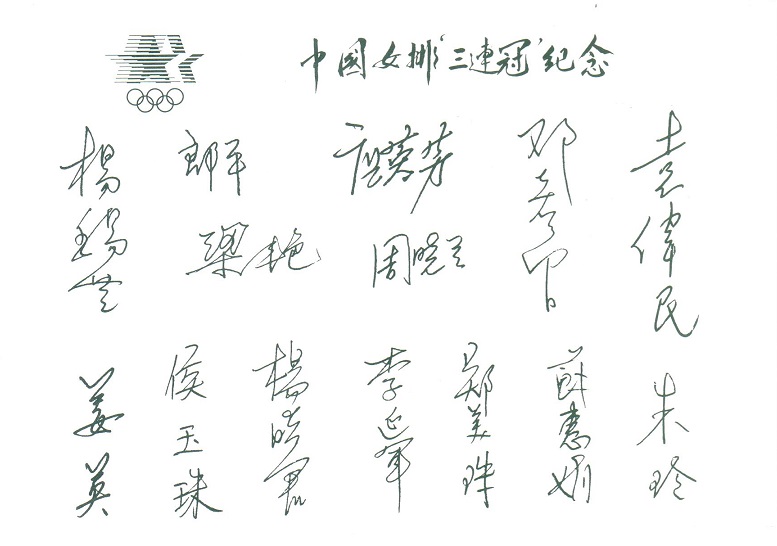 中國女排‘三連冠’纪念
楊錫兰
郎平
张蓉芳
邓若曾
袁偉民
梁艳
周晓兰
姜英
侯玉珠
楊晓君
李延军
郑美珠
蘇惠娟
朱玲